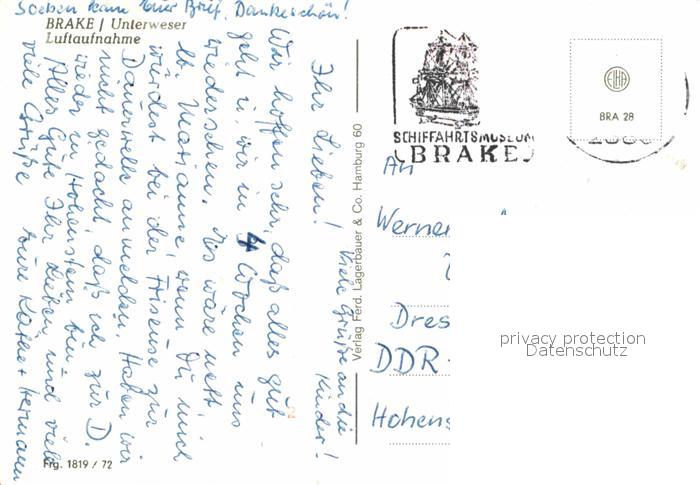 Soeben kam Euer Brief. Dankeschön!
BRAKE / Unterweser
Luftaufnahme
Ihr Lieben!
Wir hoffen sehr, daß alles gut
geht u. wir in 4 Wochen uns
wiedersehen. Es wäre nett,
lb. Marianne, wenn Du mich
würdest bei der Friseuse zur
Dauerwelle anmelden. Haben wir
nicht gedacht, daß ich zur D.
wieder in Hohenstein bin.
Alles Gute Ihr Lieben und viele
viele Grüße Eure Käthe + Hermann
Viele Grüße an die
Kinder!
Frg. 1819 / 72
Verlag Ferd. Lagerbauer & Co. Hamburg 60
SCHIFFAHRTSMUSEUM
BRAKE
BRA 28
An
Werner
Dres
DDR
Hohens
privacy protection
Datenschutz